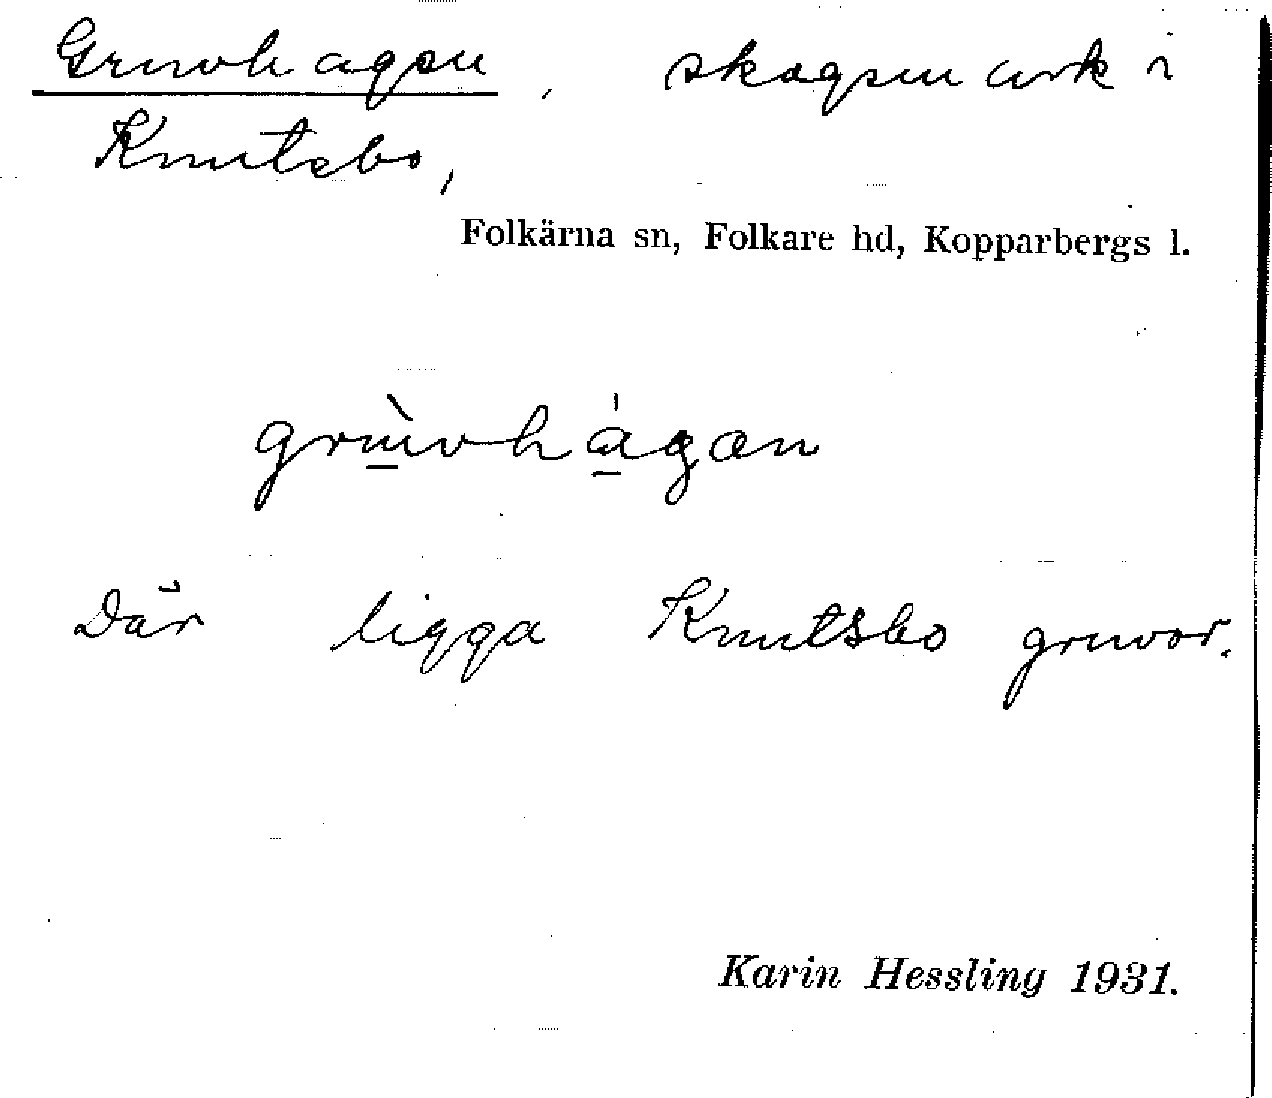 Gruvhagen, skogsmark i
Knutsbo,
Folkärna sn, Folkare hd, Kopparbergs l.
grùvhágan
Där ligga Knutsbo gruvor.
Karin Hessling 1931.